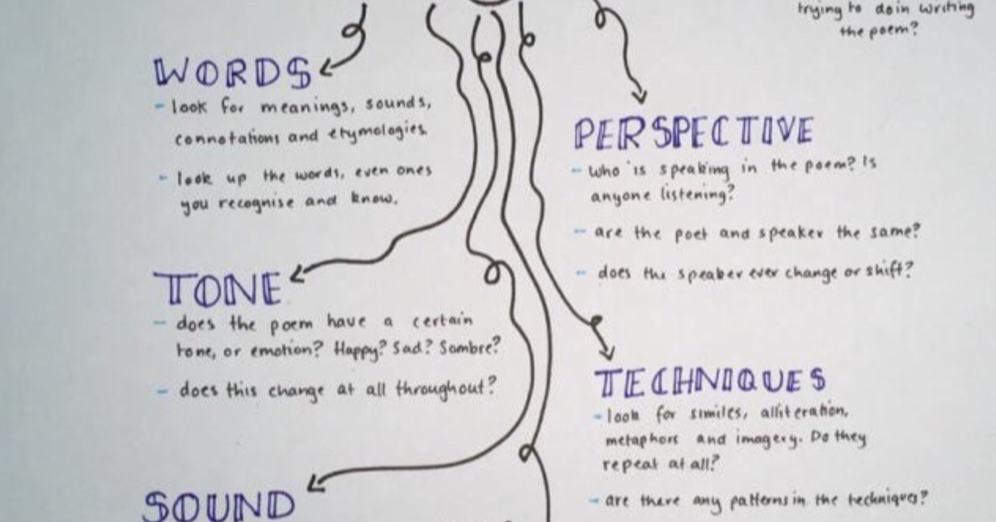 trying to do in writing
the poem?
WORDS
- look for meanings, sounds,
connotations and etymologies.
- look up the words, even ones
you recognise and know.
PERSPECTIVE
- who is speaking in the poem? Is
anyone listening?
- are the poet and speaker the same?
- does the speaker ever change or shift?
TONE
- does the poem have a certain
tone, or emotion? Happy? Sad? Sombre?
- does this change at all throughout?
TECHNIQUES
- look for similes, alliteration,
metaphors and imagery. Do they
repeat at all?
- are there any patterns in the techniques?
SOUND